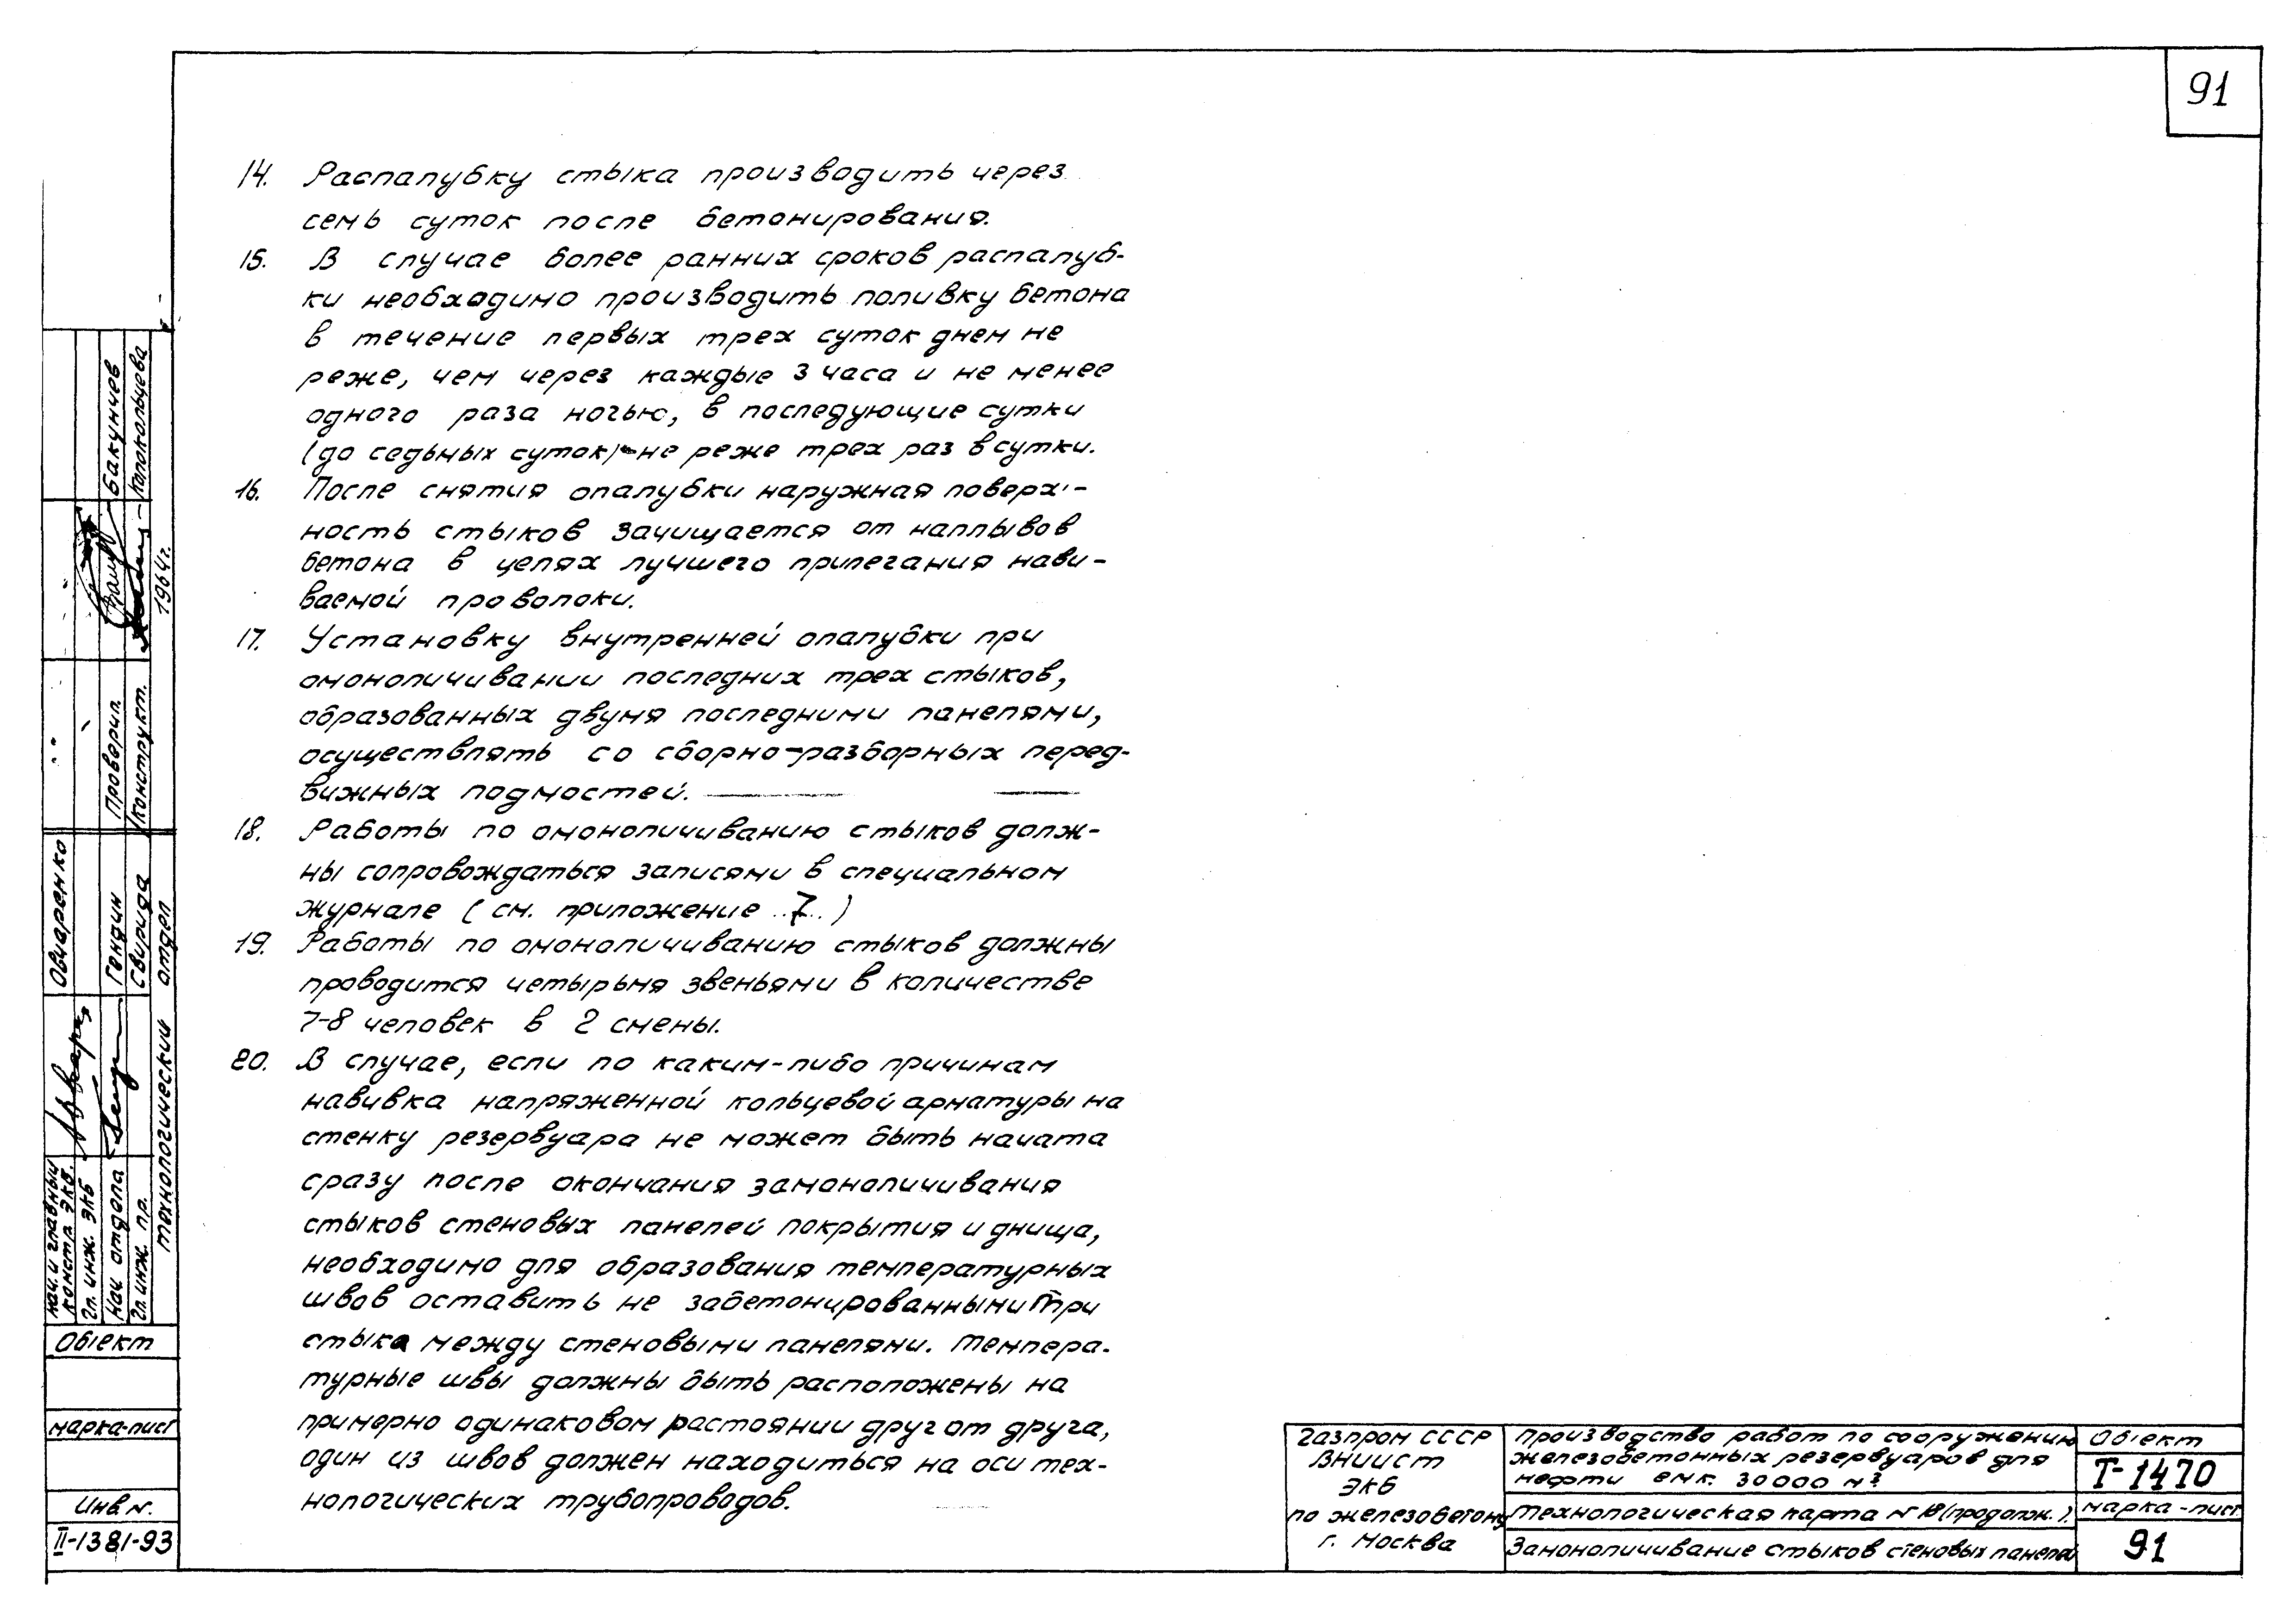 91
14. Распалубку стыка производить через
семь суток после бетонирования.
15. В случае более ранних сроков распалуб-
ки необходимо производить поливку бетона
в течение первых трех суток днем не
реже, чем через каждые 3 часа и не менее
одного раза ночью, в последующие сутки
(до седьмых суток)-не реже трех раз в сутки.
16. После снятия опалубки наружная поверх-
ность стыков зачищается от наплывов
бетона в целях лучшего прилегания нави-
ваемой проволоки.
17. Установку внутренней опалубки при
омоноличивании последних трех стыков,
образованных двумя последними панелями,
осуществлять со сборно-разборных перед-
вижных подмостей.
18. Работы по омоноличиванию стыков долж-
ны сопровождаться записями в специальном
журнале (см. приложение 7)
19. Работы по омоноличиванию стыков должны
проводится четырьмя звеньями в количестве
7-8 человек в 2 смены.
20. В случае, если по каким-либо причинам
навивка напряженной кольцевой арматуры на
стенку резервуара не может быть начата
сразу после окончания замоноличивания
стыков стеновых панелей покрытия и днища,
необходимо для образования температурных
швов оставить не забетонированными три
стыка между стеновыми панелями. Темпера-
турные швы должны быть расположены на
примерно одинаковом растоянии друг от друга,
один из швов должен находиться на оси тех-
нологических трубопроводов.
Нач. и главный
констр. ЭКБ.
Овчаренко
Гл. инж. ЭКБ
Нач отдела
Гендин
Проверил
Бакуничев
Гл. инж. пр.
Свирида
Конструкт.
Колокольцева
Технологический отдел
1964г.
Объект
марка-лист
Инв. N.
II-1381-93
Газпром СССР
ВНИИСТ
ЭКБ
по железобетону
г. Москва
Производство работ по сооружению
железобетонных резервуаров для
нефти емк. 30000 м3
Технологическая карта N 18 (продолж.).
Замоноличивание стыков стеновых панелей
Объект
Т-1470
марка-лист
91